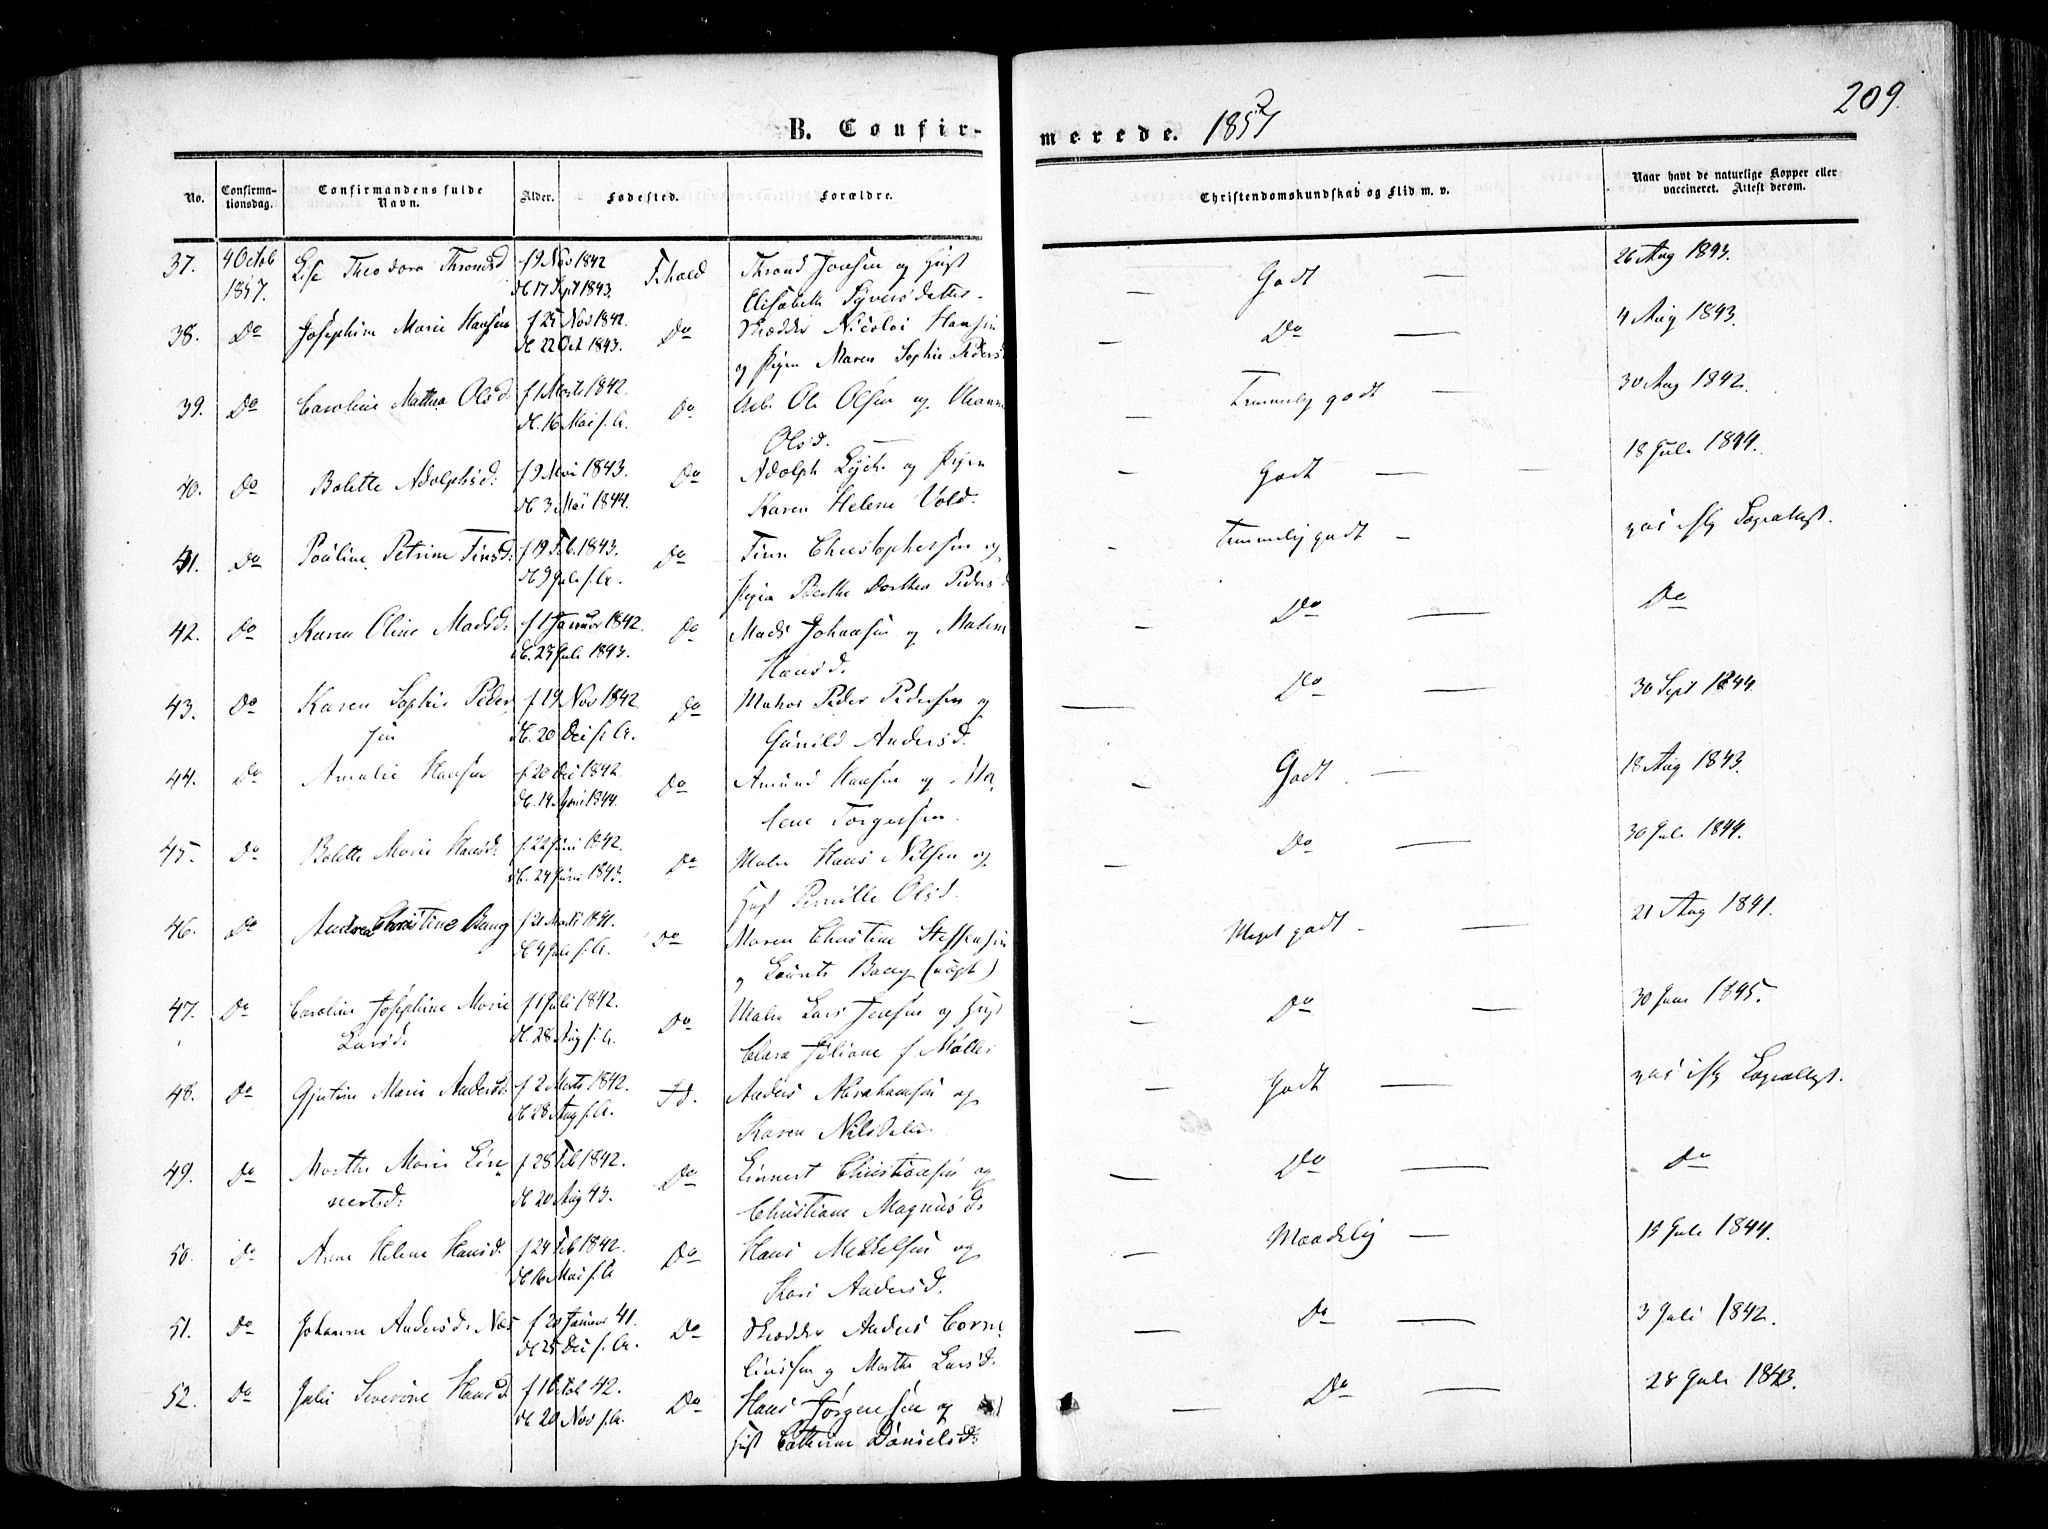 209.
B. Confirmerede. 1857
No. Confirmationsdag. Confirmandens fulde Navn. Alder. Fødested. Forældre. Christendomskundskab og Flid m. v. Naar havt de naturlige Kopper eller vaccineret. Attest derom.
37. 4 Octob f 9 Nov 1842 Thrond Jonsen og Hust — Godt — 26 Aug 1843.
1857. Theodora Throndsd d. 17 Sept 1843. Fr.hald Elisabeth Syversdatter.
38. Do Josephine Marie Hansen f 25 Nov 1842. Do Nicolai Hansen — Do — 4 Aug 1843.
d. 22 Oct. 1843. og Pigen Maren Sophie Peders
39. Do Caroline Mathea Olsd. f 1 Marts 1842 Do Arb. Ole Olsen og — Temmelig godt — 30 Aug 1842.
d. 16 Mai s. A. Olsd.
40. Do Bolette Adolphsd. f 9 1843. Do Adolph og Pigen — Godt — — 18 Juli 1844.
d. 3 Mai 1844. Karen Helene Vold.
41. Do Pauline Petrine Finsd. f 19 Feb. 1843. Do Finn Christophersen og — Temmelig godt —
d. 9 Juli s. A. Pigen Dorthea Peders
42. Do Karen Oline Madsd. f 1 Januar 1842. Do Mads Johansen og — Do — Do
d. 23 Juli 1843. Hansd.
43. Do Karen Sophie Peder f 19 Nov 1842 Do Peder Pedersen og — Do — 30 Sept 1844.
sen d. 20 Dec s. A. Gunild Andersd.
44. Do Amalie Hansen f. 20 Dec 1842. Do Amund Hansen og Ma — Godt. — 18 Aug 1843.
d. 14 April 1844. lene Torgersen.
45. Do Bolette Marie Hansd. f. 22 Juni 1842. Do Hans Nilsen og — Do — 30 Juli 1844.
d. 24 Juni 1843. Hust Pernille Olsd.
46. Do Andrea Christine Bang f 21 Marts 1841. Do Maren Christine Steffensen — Meget godt — 21 Aug 1841.
d. 4 Juli s. A. og Bang (uægt)
47. Do Caroline Josephine Marie f 1 Juli 1842. Do Lars Jensen og Hust — Do — 30 Juni 1845.
Larsd. d. 28 Aug s. A. Juliane f. Møller
48. Do Marie Andersd. f 2 Marts 1842. Fd. Anders Abrahamsen og — Godt —
d. 28 Aug s. A. Karen Nilsdatter
49. Do Marthe Marie f 28 Feb 1842. Do Christiansen og — Do — Do
d. 20 Aug 43. Christiane Magnusd.
50. Do Anne Helene Hansd. f 24 Feb 1842. Do Hans Mikkelsen og — Maadelig — 15 Juli 1844.
d. 16 Mai s. A. Kari Andersd.
51. Do Johanne Andersd. Næs f 20 Januar 41. Do Anders Corne — Do — 3 Juli 1842.
d. 25 Dec s. A. liussen og Marthe Larsd.
52. Do Julie Severine Hansd. 42. Do Hans Jørgensen og — Do — 28 Juli 1843.
d. 20 Nov s. A. Hust Cathrine Danielsd.